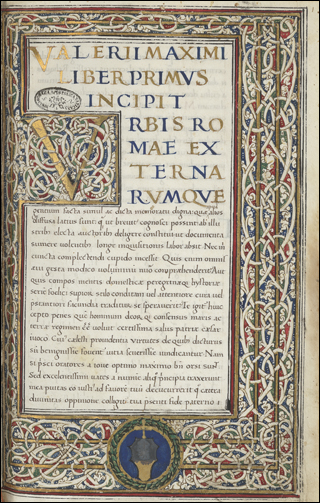 VALERII MAXIMI
LIBER PRIMUS
INCIPIT
VRBIS RO
MAE EX
TERNA
RUMQVE
gentium facta simul ac dicta memoratu digna: quae apud alios
diffusa latius sunt: q ut breuit cognosci possint: ab illu
stribs electa auctoribs deligere constitui: ut documenta
sumere uolentibs longae inquisitionis labor absit. Nec m
cuncta complectendi cupido incessit. Quis enim omnis
aeui gesta modico uoluminu numero comprehenderit? Aut
quis compos mentis domesticae peregrinaeq hystoriae
serie foelici superior stilo conditam uel attentiore cura uel
praestantiori facundia traditurum se sperauerit? Te igit huic
coepto penes quem hominum deorq consensus maris ac
terrae regimen esse uoluit certissima salus patriae caesar
inuoco: Cuius caelesti prouidentia uirtutes de quibs dicturus
sum benignissime fouent uitia seuerissime uindicantur: Nam
si prisci oratores a ioue optimo maximo bn orsi sunt
Sed excellentissimi uates a numine aliquo principia traxerunt
mea paruitas eo iustius ad fauorem tuum decucurrerit q caetera
diuinitas opinione colligitur tua praesenti fide paterno a